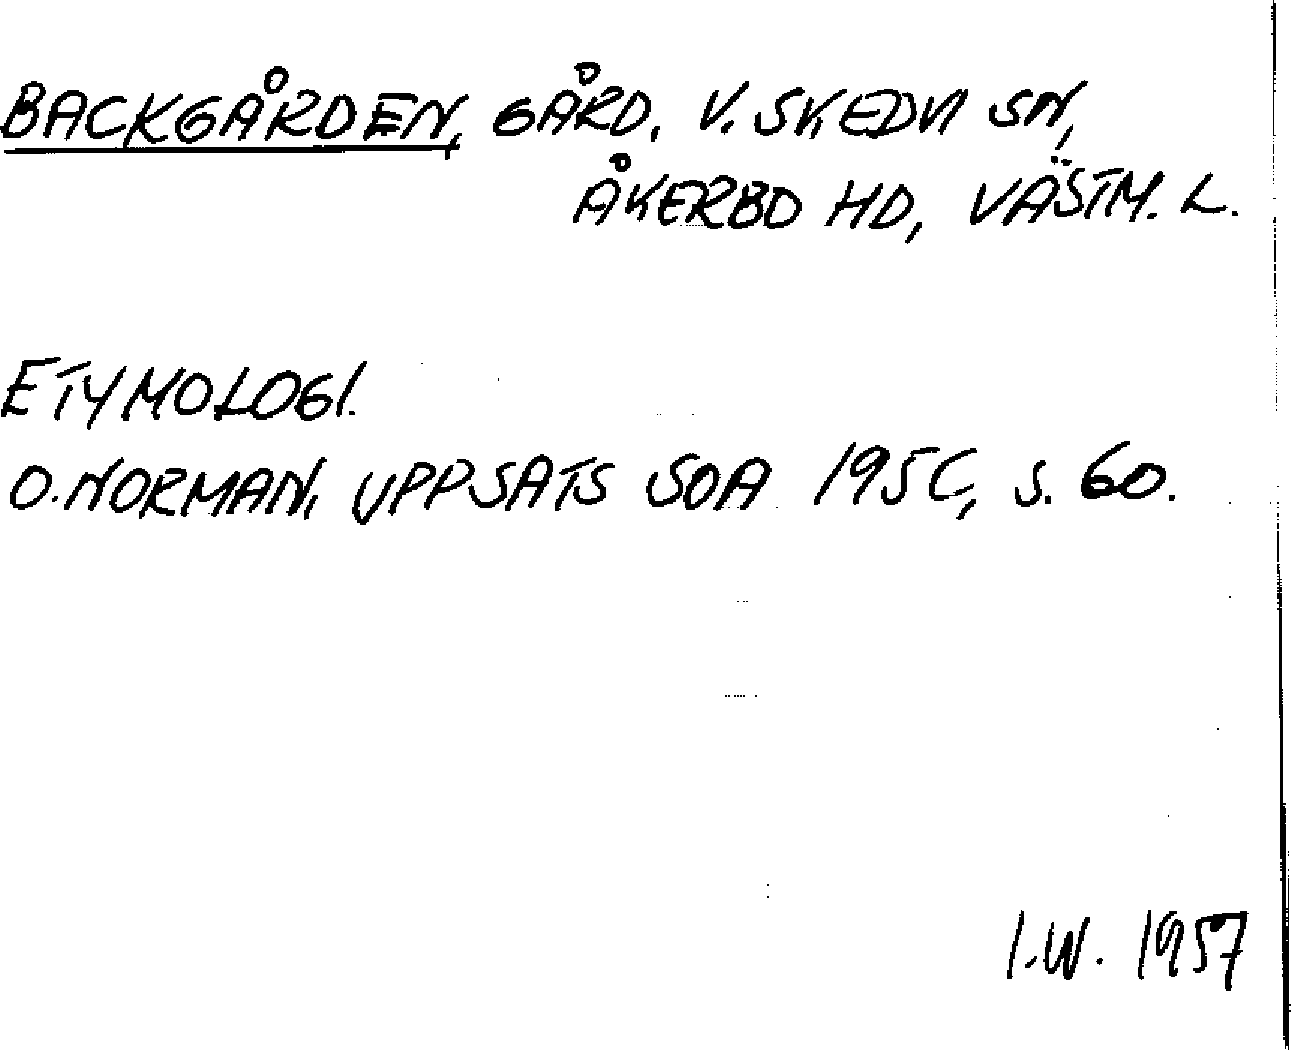 BACKGÅRDEN, GÅRD, V. SKEDVI SN,
ÅKERBO HD, VÄSTM. L.
ETYMOLOGI.
O. NORMAN, UPPSATS SOA 1956, S. 60.
I.W. 1957